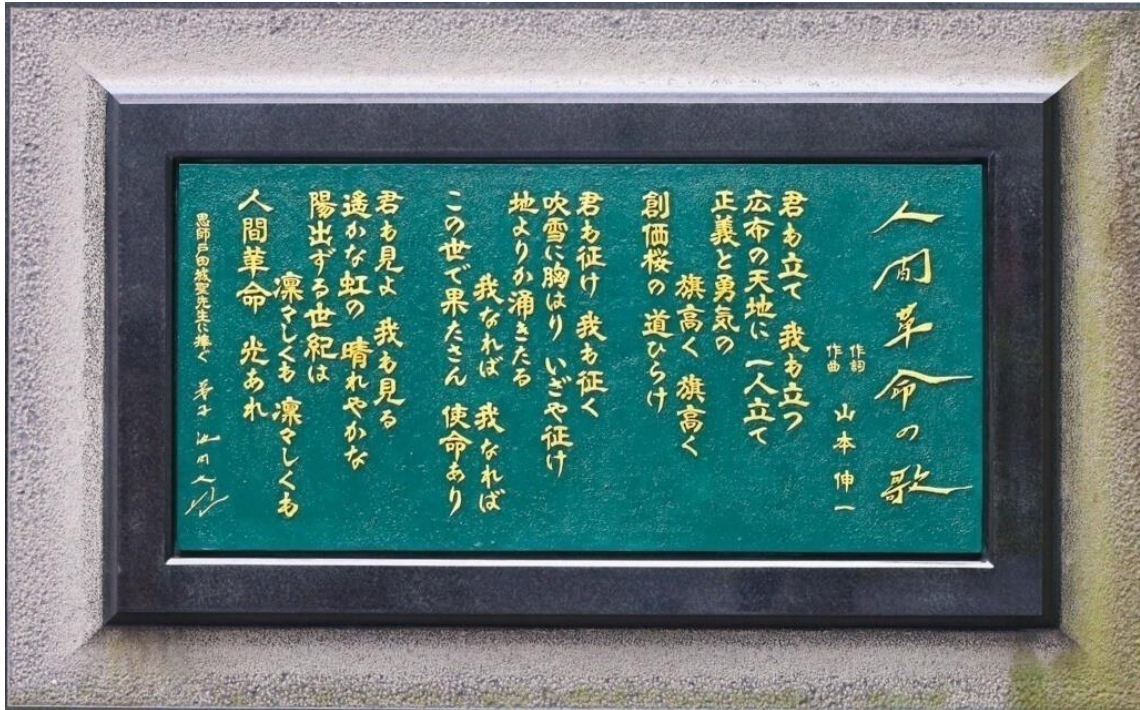 人間革命の歌
作詞
作曲
山本伸一
君も立て 我も立つ
広布の天地に 一人立て
正義と勇気の
旗高く 旗高く
創価桜の 道ひらけ
君も征け 我も征く
吹雪に胸はり いざや征け
地よりか涌きたる
我なれば 我なれば
この世で果たさん 使命あり
君も見よ 我も見る
遙かな虹の 晴れやかな
陽出ずる世紀は
凜々しくも 凜々しくも
人間革命 光あれ
恩師戸田城聖先生に捧ぐ 弟子 池田大作